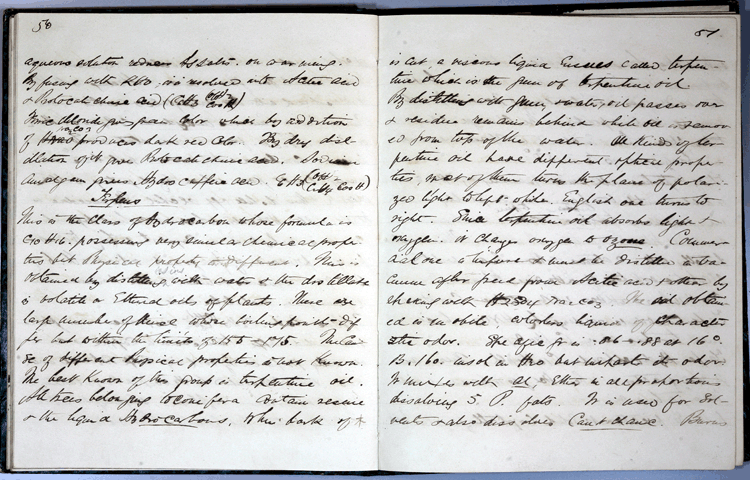 50
aqueous solution reduces Ag salts. on warming.
By fusing with KHO, is resolved into Acetic acid
& Protocatechuic acid (C6H3 (OH)2 CO2H)
Ferric chloride gives green color which by addition
of Na2CO3 produces dark red color. By dry dis-
tillation of it gives Pyrocatechuic acid. Sodium
amalgam gives Hydrocaffeic acid.
Terpens
This is the class of Hydrocarbon whose formula is
C10H16. possessing very similar chemical proper-
ties but physical property is different. This is
obtained by distilling with water & the distillate
is volatile or Etherial oils of plants. There are
large number of these whose boiling points dif-
fer but within the limits of 155 - 175. The Cau-
se of different physical properties is not known.
The best known of this group is terpentine oil.
All trees belonging to conifera contain resine
& the liquid Hydrocarbons. When bark of it
51
is cut a viscous liquid issues called terpen-
tine which is the gum of terpentine oil.
By distilling with water, oil passes over
& residue remains behind while oil is remov-
ed from top of the water. All kinds of ter-
pentine oil have different optical proper-
ties, most of them turn the plane of polari-
zed light to left. while English one turns to
right. This terpentine oil absorbs light &
oxygen. it changes oxygen to ozone. Commer-
cial one is impure & must be distilled in va-
cume after freed from Acetic acid & other by
shaking with Na2CO3 The oil obtain-
ed is mobile, colorless liquid of character-
istic odor. Specific gr is .86 - .88 at 16°.
B. 160. insol in H2O but imparts its odor.
It mixes with al, Ether in all proportions
dissolving S, P, fats. It is used for sol-
vents & also dissolves Caoutchouc. Burns